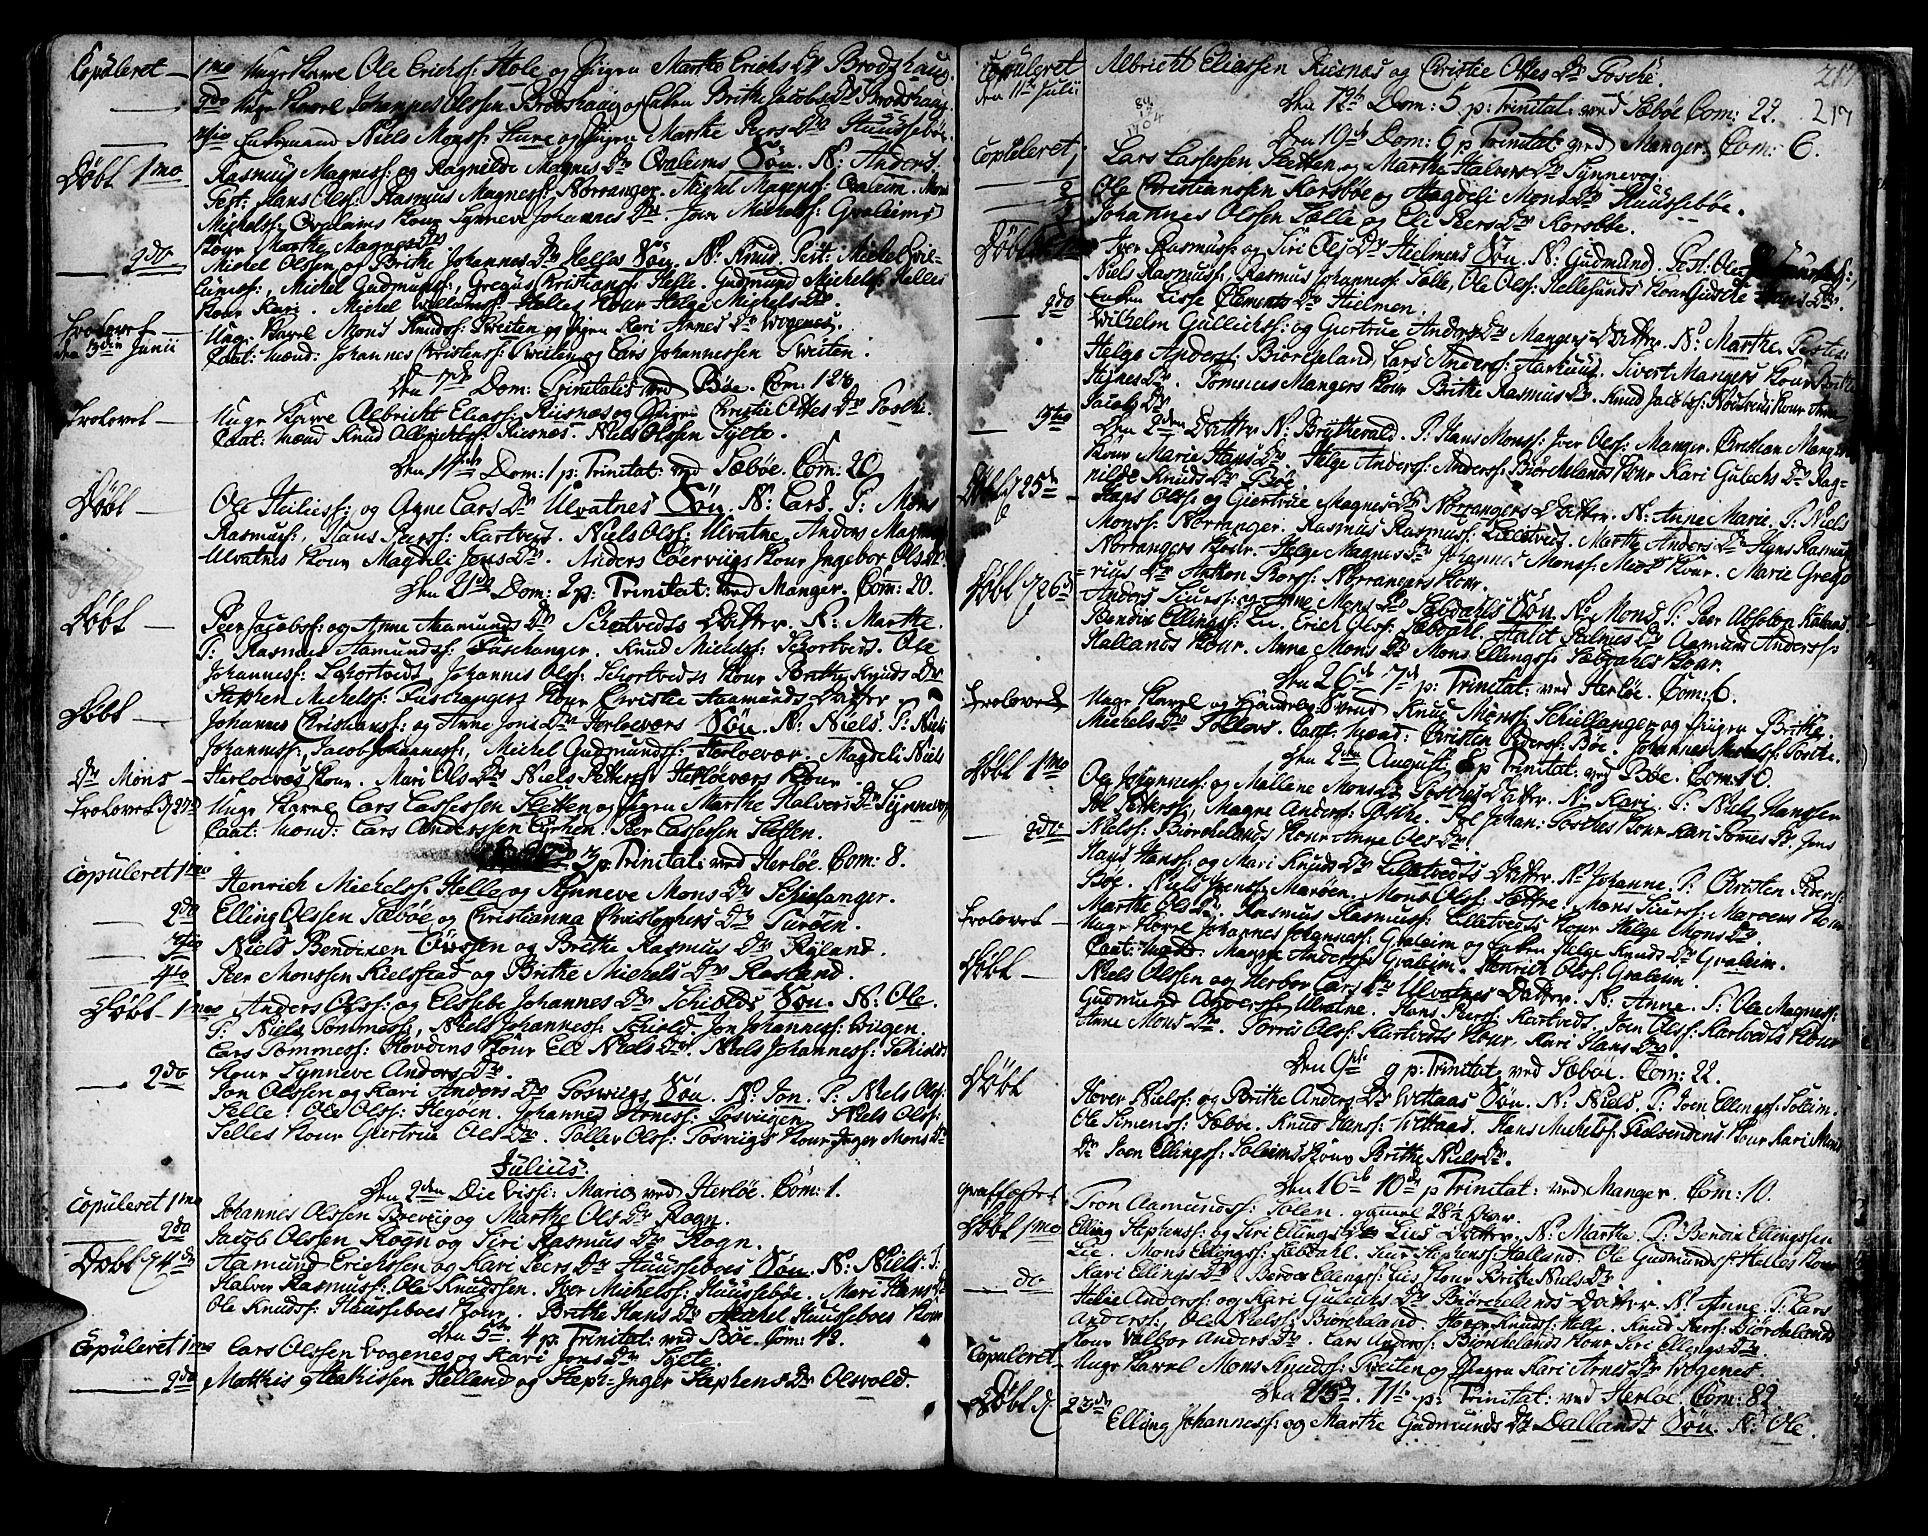 Copuleret — 1mo Unge Karl Ole Erichs: Hole og Pigen Marthe Erichs Dr Brodshaug.
— 2do Unge Karl Johannes Olssen Brodshaug og Enken Brithe Jacobs Dr Brodshaug.
— 3tio Enkemand Niels Monss: Hune og Pigen Marthe Peers Dr Huussebøe.
Døbt 1mo Rasmus Magness: og Ragnilde Magnes Dr Qvaleims Søn. N: Anders.
Test: Hans Olss: Rasmus Magness: Norranger. Michel Magness: Qvaleim. Mari
Michelss: Qvaleims Kone Synneve Johannes Dr. Joen Michelss: Gvaleims
Kone Marthe Magnes Dr.
— 2do Michel Olssen og Brithe Johannes Dr Helles Søn. N: Knud. Test: Michel Vil-
lumss:, Michel Gudmunss:, Gregus Christianss: Helle. Gudmund Michelss: Helles
Kone Kari. Michel Willumss: Helles Kone Helge Michels Dr.
Trolovet — Unge Karl Mons Knudss: Tveiten og Pigen Kari Arnes Dr Vogenes.
den 3den Junii Caut: Mænd: Johannes Christenss: Tveiten og Lars Johannessen Tveiten.
Den 7de Dom: Trinitatis ved Bøe. Com: 123
Trolovet — Unge Karl Albricht Eliass: Riisnæs og Pigen Christie Ottes Dr Tosche.
Caut: Mænd Knud Albrichtss: Riisnæs. Niels Olssen Sylte.
Den 14de Dom: 1 p: Trinitat: ved Sæbøe. Com: 20
Døbt — Ole Heliess: og Agne Lars Dr Ulvatnes Søn. N: Lars. T: Mons
Rasmuss:, Hans Peerss: Hartvet. Niels Olss: Ulvatne, Anders Magness:
Ulvatnes Kone Magdeli Jens Dr. Anders Cöerviigs Kone Ingebor Ols Dr.
Den 21de Dom: 2 p: Trinitat: ved Manger. Com: 20.
Døbt — Peer Jacobss: og Anne Aamunds Dr Schortvedts Datter. N: Marthe.
T: Rasmus Aamundss: Fuschanger. Knud Michelss: Schortvedt. Ole
Johanness: Schortvedt. Johannes Olss: Schortvedts Kone Brithe Knuds Dr
Stephen Michelss: Fuschangers Kone Christie Aamunds Datter
Døbt — Johannes Christianss: og Anne Jons Dr Herloevers Søn. N: Niels. T: Niels
Johanness:, Jacob Johanness:, Michel Gudmundss: Herloevær. Magdeli Niels
Dr Mons — Herloevæs Kone. Mari Ols Dr Niels Pederss: Herloevers Kone
Trolovet d 27de Unge Karl Lars Lassessen Sletten og Pigen Marthe Halvers Dr Synnevog
Caut: Mænd: Lars Anderssen Tirhen. Peer Lassessen Sletten.
3 p: Trinitat: ved Herløe. Com: 8.
Copuleret 1mo Henrich Michelss: Helle og Synneve Mons Dr Schielanger.
— 2do Elling Olssen Sæbøe og Christianna Christophers Dr Turøen.
— 3tio Niels Bendixen Övssen og Brithe Rasmus Dr Ryland.
— 4to Peer Monssen Kielstad og Brithe Michels Dr Rosland.
Døbt — 1mo Anders Olss: og Elssebe Johannes Dr Schibolds Søn. N: Ole.
T: Niels Tommess:, Niels Johanness: Schield. Jon Johanness: Wiigen.
Lars Tommess: Hovdens Kone Eli Niels Dr. Niels Johanness: Schield:
Kone Synneve Anders Dr.
— 2do Jon Olssen og Kari Anders Dr Tosviigs Søn. N: Jon. T: Niels Olss:
Selle. Ole Olss: Hegøen. Johannes Arness: Tosviigen. Niels Olss:
Selles Kone Giertrue Ols Dr. Toller Olss: Tosviigs Kone Inger Mons Dr
Julius.
Den 2den Die Visit: Mariæ ved Herløe. Com: 1.
Copuleret 1mo Johannes Olssen Breviig og Marthe Ols Dr Rogn.
— 2do Jacob Olssen Rogn og Siri Rasmus Dr Rogn.
Døbt d 4de Aamund Erichssen og Kari Peers Dr Huussebøes Søn. N: Niels. T:
Halver Rasmuss: Ole Knudssen. Iver Michelss: Huussebøe. Mari Hans Dr
Ole Knudss: Huussebøes Kone. Brithe Hans Dr Michel Huussebøes Kone
Den 5te. 4 p: Trinitat: ved Bøe. Com: 42.
Copuleret 1mo Lars Olssen Vogenes og Kari Jons Dr Sylte.
— 2do Matthis Mathissen Helland og Steph-Inger Stephens Dr Olsvold.
217
217
89
1704
Copuleret
den 11te Julii
Albricht Eliassen Riisnæs og Christie Ottes Dr Tosche.
Den 12te Dom: 5 p: Trinitat: ved Sæbøe Com: 22.
Den 19de Dom: 6 p Trinitat: ved Manger. Com: 6.
Copuleret 1 Lars Lassessen Sletten og Marthe Halvers Dr Synnevog.
— 2 Ole Christianssen Korsbøe og Magdeli Mons Dr Huussebøe.
— 3 Johannes Olssen Sælle og Eli Peers Dr Korsbøe.
Døbt 1mo Iver Rasmuss: og Siri Ols Dr Hielmens Søn. N: Gudmund. Test: Ole
Niels Rasmuss:, Rasmus Johanness: Sælle, Ole Olss: Hellesunds Kone Giidsche Hans Dr.
Enken Lisse Clements Dr Hielmen.
— 2do Wilhelm Gullichss: og Giertrue Anders Dr Mangers Datter. N: Marthe. Testes:
Helge Anderss: Biørcheland, Lars Anderss: Aarhuus. Sivert Mangers Kone Brithe
Hægnes Dr. Tommes Mangers Kone Brithe Rasmus Dr. Knud Jacobss: Nødtveds Kone Anne
Jacobs Dr.
— 3tio Den 2den Datter N: Brytheväld. T: Hans Monss: Iver Olss: Manger. Christian Mangers
Kone Marie Hans Dr. Helge Anderss: Anderss: Biørchelands Kone Kari Gulichs Dr Rag-
nilde Knuds Dr Bøe.
Døbt d 25de Hans Olss: og Giertrue Magnes Dr Norrangers Datter. N: Anne Marie. T: Niels
Monss: Norranger. Rasmus Rasmuss: Lilletveds. Marthe Anders Dr Hans Rasmuss:
Norrangers Kone. Helge Magnes Dr Johannes Monss: Mios Kone. Marie Grego-
=rius Dr Anthon Rorss: Norrangers Kone.
Døbt d 26de Anders Siurss: og Anne Mons Dr Sæbdahls Søn. N: Mons. T: Peer Absolon Røland
Bendix Ellingss: Lie. Erich Olss: Sæbdahl. Halit Helmes Dr Aamund Anderss:
Hallands Kone. Anne Mons Dr Mons Ellingss: Sæbdahls Kone.
Den 26de 7de p: Trinitat: ved Herløe. Com: 6.
Trolovet Unge Karl og Haderlig Svend Knud Monss: Schiellanger og Pigen Brithe
Michels Dr Tolløes. Caut: Mænd: Christen Pederss: Bøe. Johannes Michelss: Tosche.
Den 2den August 8 p Trinitat: ved Bøe. Com: 10.
Døbt 1mo Ole Johanness: og Mallene Mons Dr Tosches Datter. N: Kari. T: Niels Hanssen
Pol Pederss: Magne Anderss: Tosche. Pol Johan: Tosches Kone Kari Tomes Dr, Jens
Nielss: Biørchelands Kone Anne Ols Dr.
— 2do Hans Hanss: og Mari Knuds Dr Lilletvedts Datter. N: Johanne. T: Christen Pederss:
Bøe. Niels Jenss: Marøen. Mons Olss: Sættre. Mons Siurss: Marøens Kone
Marthe Ols Dr. Rasmus Rasmuss: Lilletvedts Kone Helge Mons Dr
Trolovet — Unge Karl Johannes Johanness: Gvaleim og Enken Helge Knuds Dr Gvaleim.
Caut: Mænd: Magne Anderss: Gvaleim. Henrich Olss: Gvaleim.
Døbt — Niels Olssen og Herbor Lars Dr Ulvatnes Datter. N: Anne. T: Ole Magness:
Gudmund Anderss: Ulvatne. Hans Peerss: Hartvedt. Joen Olss: Hartvedts Kone
Anne Mons Dr. Torris Olss: Hartvedts Kone, Kari Hans Dr.
Den 9de 9 p: Trinitat: ved Sæbøe. Com: 22.
Døbt Hover Nielss: og Brithe Anders Dr Wettaas Søn. N: Niels. T: Joen Ellingss: Soleim.
Ole Simenss: Sæbøe. Knud Hanss: Wettaas. Hans Michelss: Sælsendens Kone Kari Mons
Dr Joen Ellingss: Soleims Kone Brithe Niels Dr.
Den 16de 10de p Trinitat: ved Manger. Com: 10.
Graffæstet Tron Aamundss: Solen. gamel 28½ Aar.
Døbt 1mo Elling Stephenss: og Siri Ellings Dr Lies Datter. N: Marthe. T: Bendix Ellingssen
Lie. Mons Ellingss: Sæbdahl. Siur Stephenss: Halland. Ole Gudmundss: Helles Kone
Kari Ellings Dr. Bendix Ellingss: Lies Kone Brithe Niels Dr
— do Helie Anderss: og Kari Gulichs Dr Biørchelands Datter. N: Anne. T: Lars
Anderss:, Ole Nielss: Biørcheland. Hover Knudss: Helle. Knud Peerss: Biørchelands
Kone Valbor Anders Dr. Lars Anderss: Biørchelands Kone Siri Ellings Dr.
Copuleret — Unge Karl Mons Knudss: Tveiten og Pigen Kari Arnes Dr Wogenes.
Den 23de. 11te p: Trinitat: ved Herløe. Com: 82.
Døbt d 23de Elling Johanness: og Marthe Gudmunds Dr Dallands Søn. N: Ole.